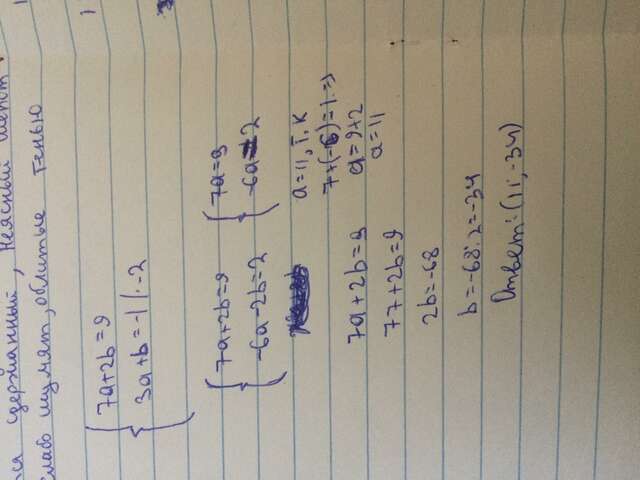 сдержанный, Неясный шепот.
Слабо шумят, облитые тенью
{ 7a+2b=9
3a+b=-1 |·-2
{ 7a+2b=9
-6a-2b=2
{ 7a=9
-6a=2
a=11, т.к
7+(-6)=1 =>
a=9+2
a=11
7a+2b=9
77+2b=9
2b=-68
b=-68:2=-34
Ответ: (11;-34)